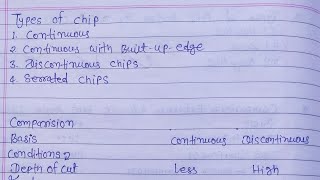 Types of chip
1. Continuous
2 Continuous with Built-up-edge
3. Discontinuous chips
4. Serrated chips
Comparision
Basis Continuous Discontinuous
Conditions?
Depth of cut Less High